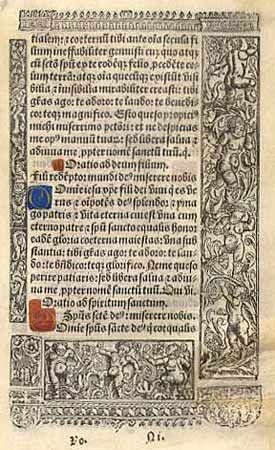 tialem: & coeternū tibi ante oīa secula fi
lium ineffabiliter genuisti cū quo atq;
cū scō spū ex te & eodē filio, pcedēte ce
lum terrā: atq; oīa quecūq; existūt visi
bilia & īvisibilia mirabiliter creasti: tibi
grās ago: te adoro: te laudo: te benedi
co: teq; magnifico. Esto queso ppici9
michi miserrimo pctōri: et ne despicias
me op9 manuū tuaū: sed libera salua &
adiuua me, ppter nomē sanctū tuū. q.
Oratio ad deum filium.
Fili redēptor mundi de9 miserere nobis
Domine iesu xpe fili dei viui q es ve
rus & oīpotēs de9 splendor & yma
go patris & vita eterna cui est vna cum
eterno patre & cū spū sancto equalis honor
eadē gloria coeterna maiestas: vna sub
stantia: tibi grās ago: te adoro: te lau
do: te bn̄dico: teq; glorifico. Ne me queso
perire patiaris: sed libera salua & adiu
ua me, ppter nomē sanctū tuū. Qui vi.
Oratio ad spiritum sanctum.
Spūs scte de9: miserere nobis.
Domine spūs sācte de9 q coequalis
Vo. Ni.